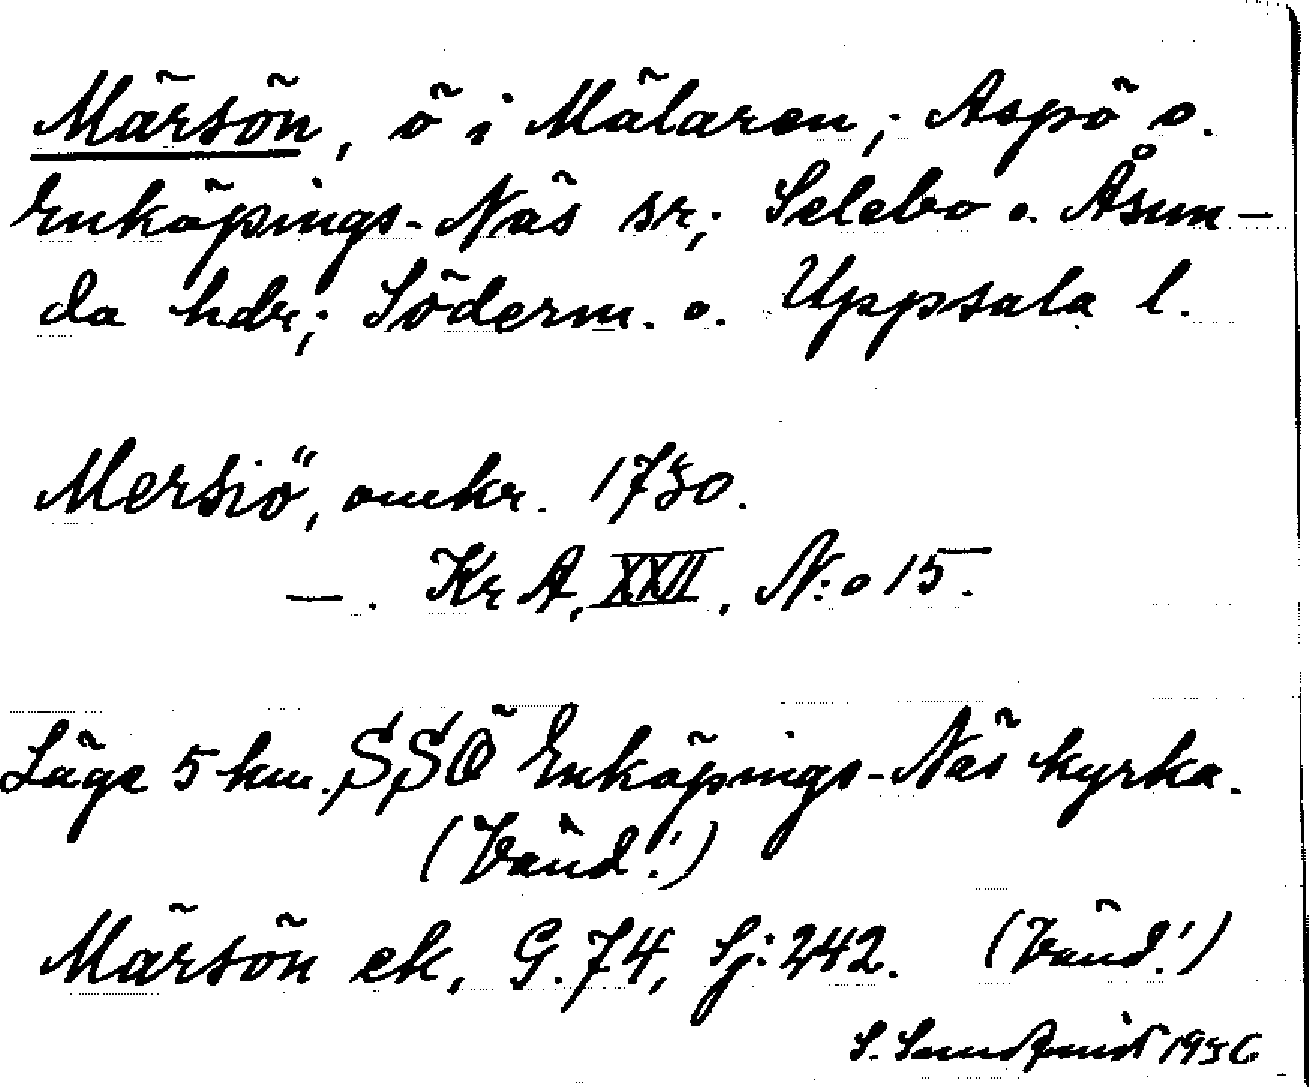 Märsön, ö i Mälaren; Aspö o.
Enköpings-Näs sr; Selebo o. Åsun-
da hdr; Söderm. o. Uppsala l.
Mersiö, omkr. 1730.
—. Kr A, XXII, N:o 15.
Läge 5 km. SSÖ Enköpings-Näs kyrka.
(Vänd!)
Märsön ek, G. 74, Sj: 242. (Vänd!)
S. Sundqvist 1936